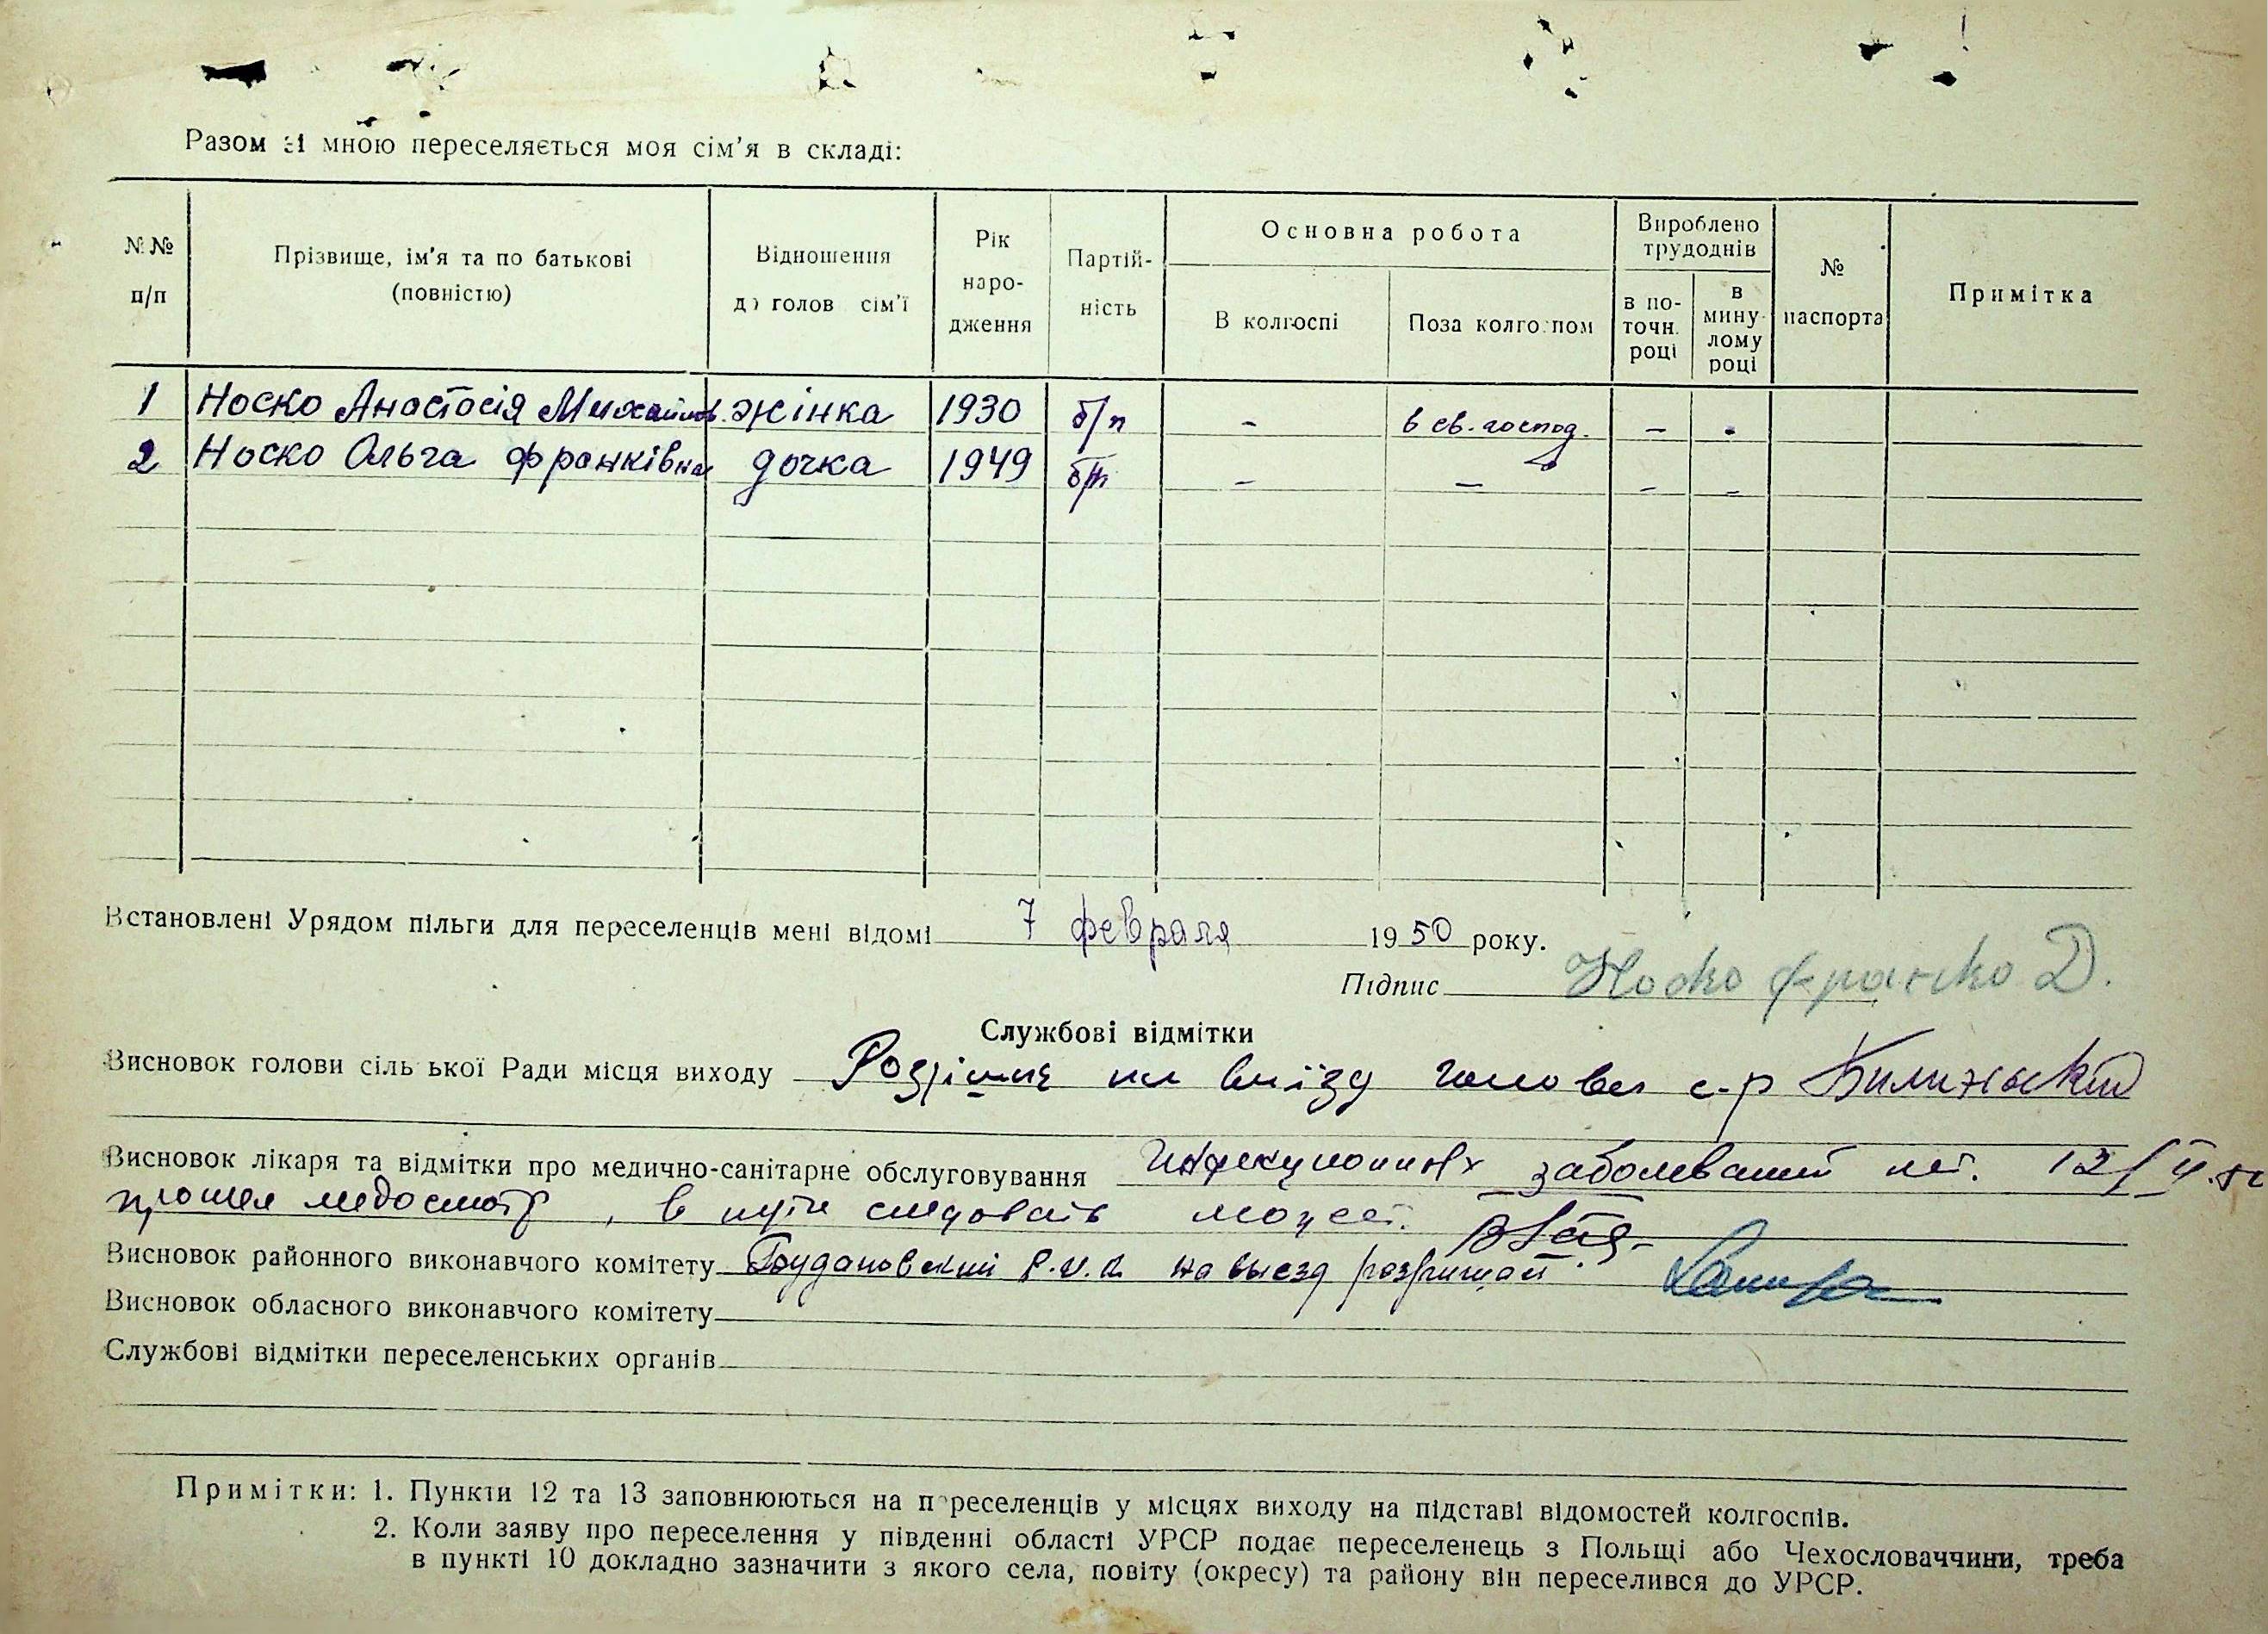 Разом зі мною переселяється моя сім'я в складі:
№№ п/п
Прізвище, ім'я та по батькові (повністю)
Відношення до голов сім'ї
Рік народження
Партійність
Основна робота
В колгоспі
Поза колгоспом
Вироблено трудоднів
в поточн. році
в минулому році
№ паспорта
Примітка
1 Носко Анастасія Михайлов. жінка 1930 б/п - в св. господ. - -
2 Носко Ольга Франківна дочка 1949 б/п - - - -
Встановлені Урядом пільги для переселенців мені відомі 7 февраля 1950 року.
Підпис Носко Франко Д.
Службові відмітки
Висновок голови сільської Ради місця виходу на виїзд голова с-р
Висновок лікаря та відмітки про медично-санітарне обслуговування Инфекционных заболеваний нет. 12/II.50
прошел медосмотр, в пути следовать может.
Висновок районного виконавчого комітету Будановский Р.И.К. на выезд
Висновок обласного виконавчого комітету
Службові відмітки переселенських органів
Примітки: 1. Пункти 12 та 13 заповнюються на переселенців у місцях виходу на підставі відомостей колгоспів.
2. Коли заяву про переселення у південні області УРСР подає переселенець з Польщі або Чехословаччини, треба
в пункті 10 докладно зазначити з якого села, повіту (окресу) та району він переселився до УРСР.